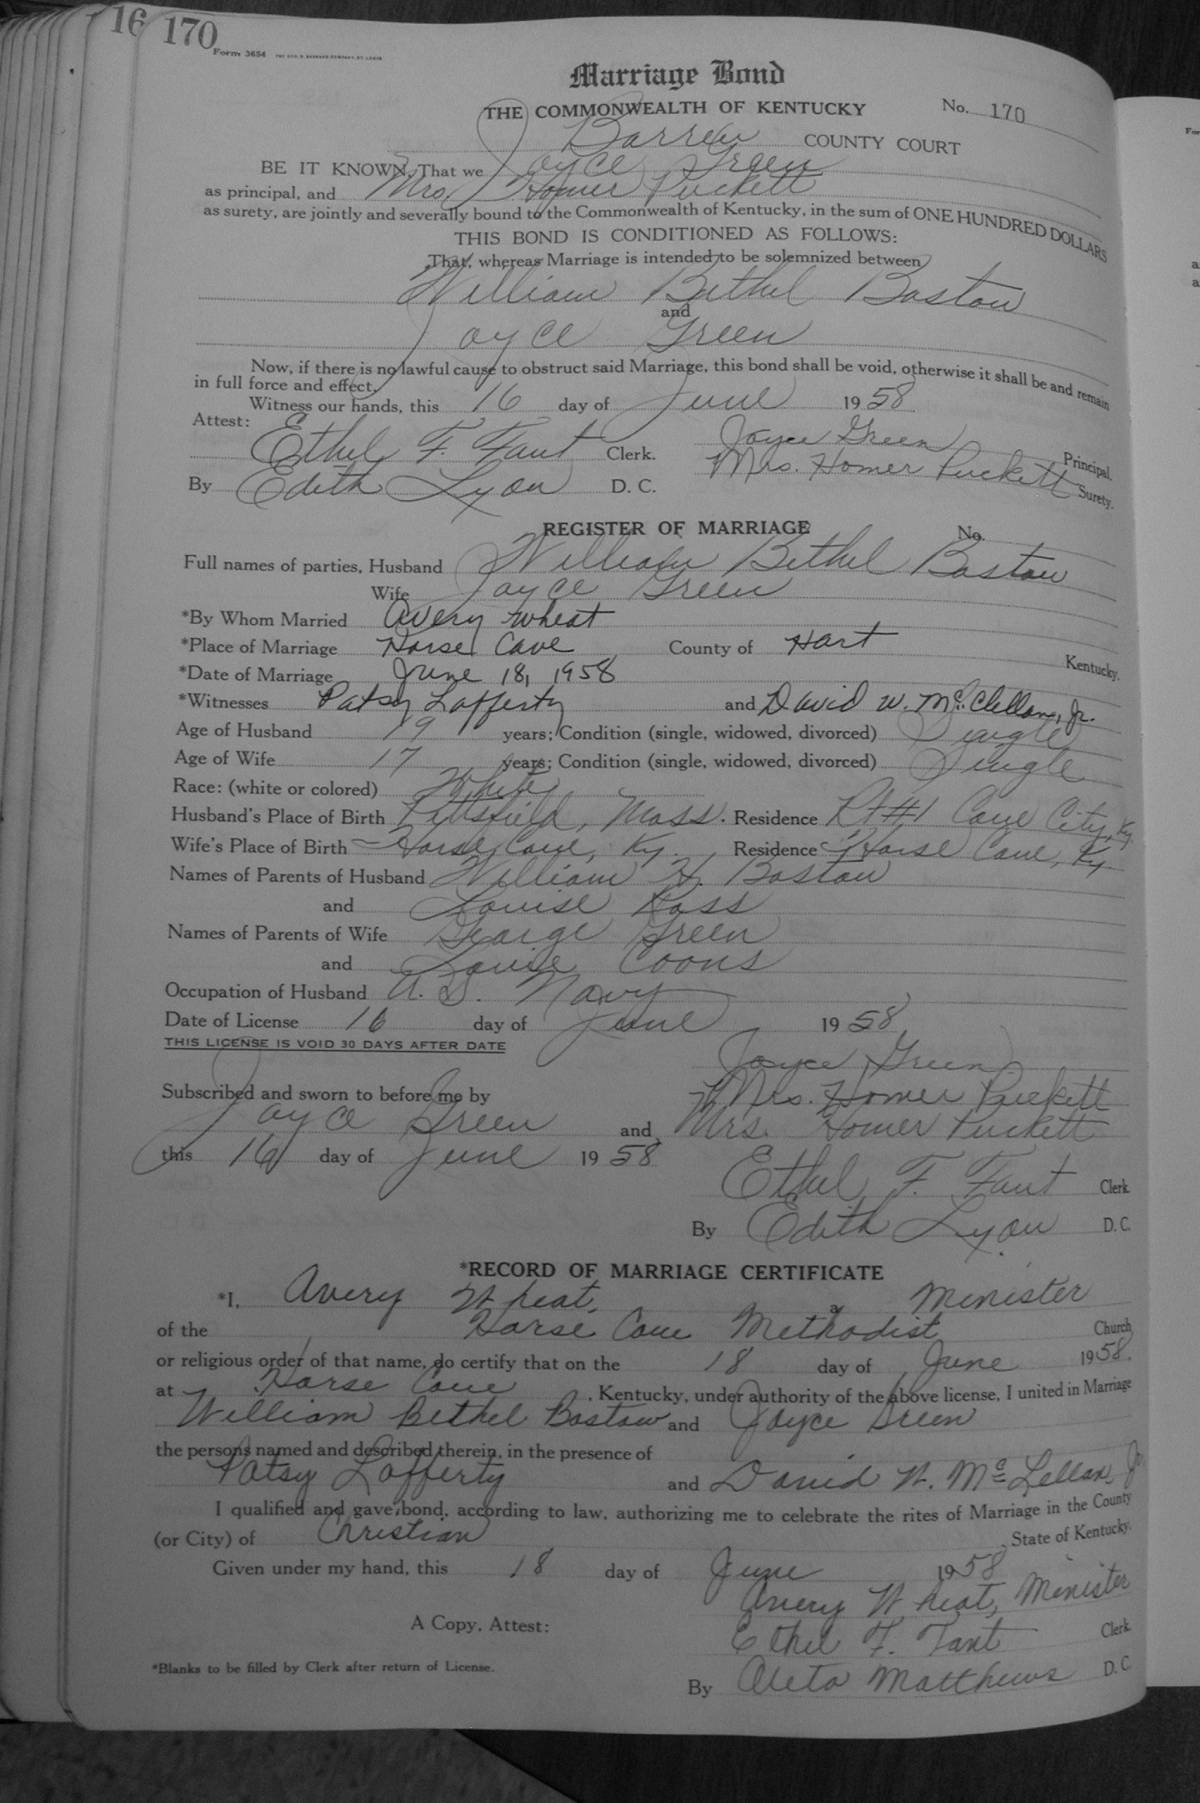 16 170
Form 3654
Marriage Bond
THE COMMONWEALTH OF KENTUCKY No. 170
Barren COUNTY COURT
BE IT KNOWN, That we Joyce Green
as principal, and Mrs. Homer Puckett
as surety, are jointly and severally bound to the Commonwealth of Kentucky, in the sum of ONE HUNDRED DOLLARS
THIS BOND IS CONDITIONED AS FOLLOWS:
That, whereas Marriage is intended to be solemnized between
William Bethel Bastow
and
Joyce Green
Now, if there is no lawful cause to obstruct said Marriage, this bond shall be void, otherwise it shall be and remain
in full force and effect.
Witness our hands, this 16 day of June 1958
Attest: Joyce Green Principal.
Ethel F. Fant Clerk. Mrs. Homer Puckett Surety.
By Edith Lyon D. C.
REGISTER OF MARRIAGE No.
Full names of parties, Husband William Bethel Bastow
Wife Joyce Green
*By Whom Married Avery Wheat
*Place of Marriage Horse Cave County of Hart Kentucky.
*Date of Marriage June 18, 1958
*Witnesses Patsy Lafferty and David W. McClellan, Jr.
Age of Husband 19 years; Condition (single, widowed, divorced) Single
Age of Wife 17 years; Condition (single, widowed, divorced) Single
Race: (white or colored) White
Husband's Place of Birth Pittsfield, Mass. Residence Rt #1 Cave City, Ky
Wife's Place of Birth Horse Cave, Ky. Residence Horse Cave, Ky
Names of Parents of Husband William H. Bastow
and Louise Ross
Names of Parents of Wife George Green
and Louise Coons
Occupation of Husband U. S. Navy
Date of License 16 day of June 1958
THIS LICENSE IS VOID 30 DAYS AFTER DATE
Joyce Green
Subscribed and sworn to before me by Mrs. Homer Puckett
Joyce Green and Mrs. Homer Puckett
this 16 day of June 1958
Ethel F. Fant Clerk
By Edith Lyon D. C.
*RECORD OF MARRIAGE CERTIFICATE
*I, Avery Wheat, a Minister
of the Horse Cave Methodist Church
or religious order of that name, do certify that on the 18 day of June 1958.
at Horse Cave, Kentucky, under authority of the above license, I united in Marriage
William Bethel Bastow and Joyce Green
the persons named and described therein, in the presence of
Patsy Lafferty and David W. McLellan, Jr
I qualified and gave bond, according to law, authorizing me to celebrate the rites of Marriage in the County
(or City) of Christian, State of Kentucky.
Given under my hand, this 18 day of June 1958
Avery Wheat, Minister
A Copy, Attest: Ethel F. Fant Clerk
*Blanks to be filled by Clerk after return of License.
By Oleta Matthews D. C.